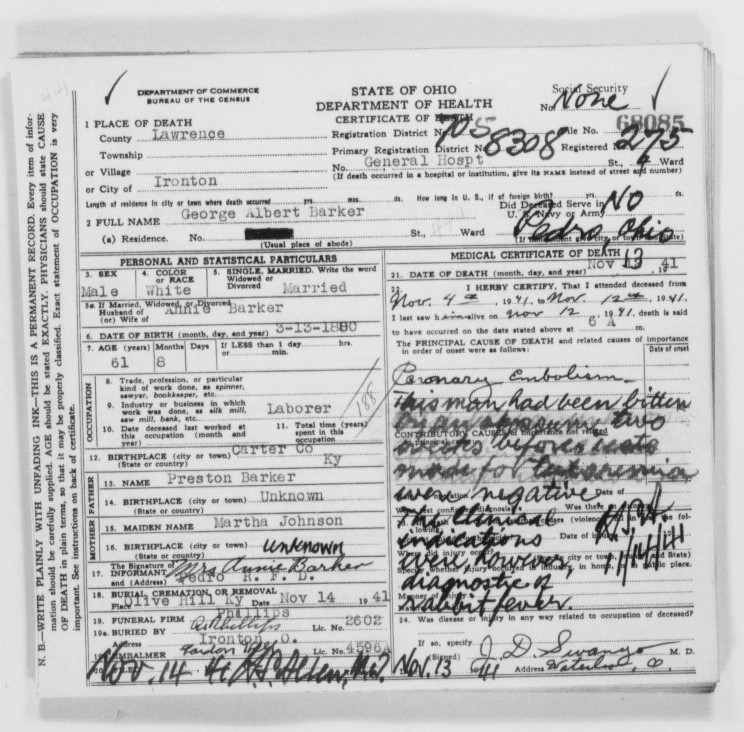 DEPARTMENT OF COMMERCE
BUREAU OF THE CENSUS
STATE OF OHIO
DEPARTMENT OF HEALTH
CERTIFICATE OF DEATH
Social Security
No. None
68085
1 PLACE OF DEATH
County Lawrence
Registration District No.
File No.
Township
Primary Registration District No. 8308 Registered No. 275
or Village
No. General Hospt St., 4 Ward
or City of Ironton
(If death occurred in a hospital or institution, give its NAME instead of street and number)
Length of residence in city or town where death occurred yrs. mos. ds. How long in U. S., if of foreign birth? yrs. mos. ds.
Did Deceased Serve in
U. S. Navy or Army No
2 FULL NAME George Albert Barker
(a) Residence. No. St., Ward Pedro, Ohio
(Usual place of abode)
PERSONAL AND STATISTICAL PARTICULARS
3. SEX Male
4. COLOR or RACE White
5. SINGLE, MARRIED. Write the word
Widowed or
Divorced Married
5a. If Married, Widowed, or Divorced
Husband of
(or) Wife of Annie Barker
6. DATE OF BIRTH (month, day, and year) 3-13-1880
7. AGE (years) 61 Months 8 Days
If LESS than 1 day hrs.
or min.
OCCUPATION
8. Trade, profession, or particular
kind of work done, as spinner,
sawyer, bookkeeper, etc.
9. Industry or business in which
work was done, as silk mill,
saw mill, bank, etc. Laborer
10. Date deceased last worked at
this occupation (month and
year)
11. Total time (years)
spent in this
occupation
188
12. BIRTHPLACE (city or town) Carter Co
(State or country) Ky
FATHER
13. NAME Preston Barker
14. BIRTHPLACE (city or town) Unknown
(State or country)
MOTHER
15. MAIDEN NAME Martha Johnson
16. BIRTHPLACE (city or town) Unknown
(State or country)
17. The Signature of
INFORMANT Mrs Annie Barker
and (Address) Pedro R.F.D.
18. BURIAL, CREMATION, OR REMOVAL
Place Olive Hill Ky Date Nov 14 1941
19. FUNERAL FIRM Phillips
19a. BURIED BY Lic. No. 2602
Address Ironton, O.
EMBALMER Lic. No. 4596A
Nov. 14
MEDICAL CERTIFICATE OF DEATH
21. DATE OF DEATH (month, day, and year) Nov 13 1941
22. I HEREBY CERTIFY, That I attended deceased from
Nov. 4th, 1941, to Nov. 12th, 1941.
I last saw him alive on Nov 12, 1941, death is said
to have occurred on the date stated above at 6 A m.
THE PRINCIPAL CAUSE OF DEATH and related causes of importance
in order of onset were as follows:
Date of onset
Coronary Embolism
This man had been bitten
by an opossum two
weeks before tests
made for tularemia
were negative
The clinical
indications
were, however,
diagnostic of
rabbit fever.
24. Was disease or injury in any way related to occupation of deceased?
If so, specify
(Signed) J. D. Swango M. D.
Nov. 13 1941 Address Waterloo, O.
N. B.—WRITE PLAINLY WITH UNFADING INK—THIS IS A PERMANENT RECORD. Every item of information should be carefully supplied. AGE should be stated EXACTLY. PHYSICIANS should state CAUSE OF DEATH in plain terms, so that it may be properly classified. Exact statement of OCCUPATION is very important. See instructions on back of certificate.